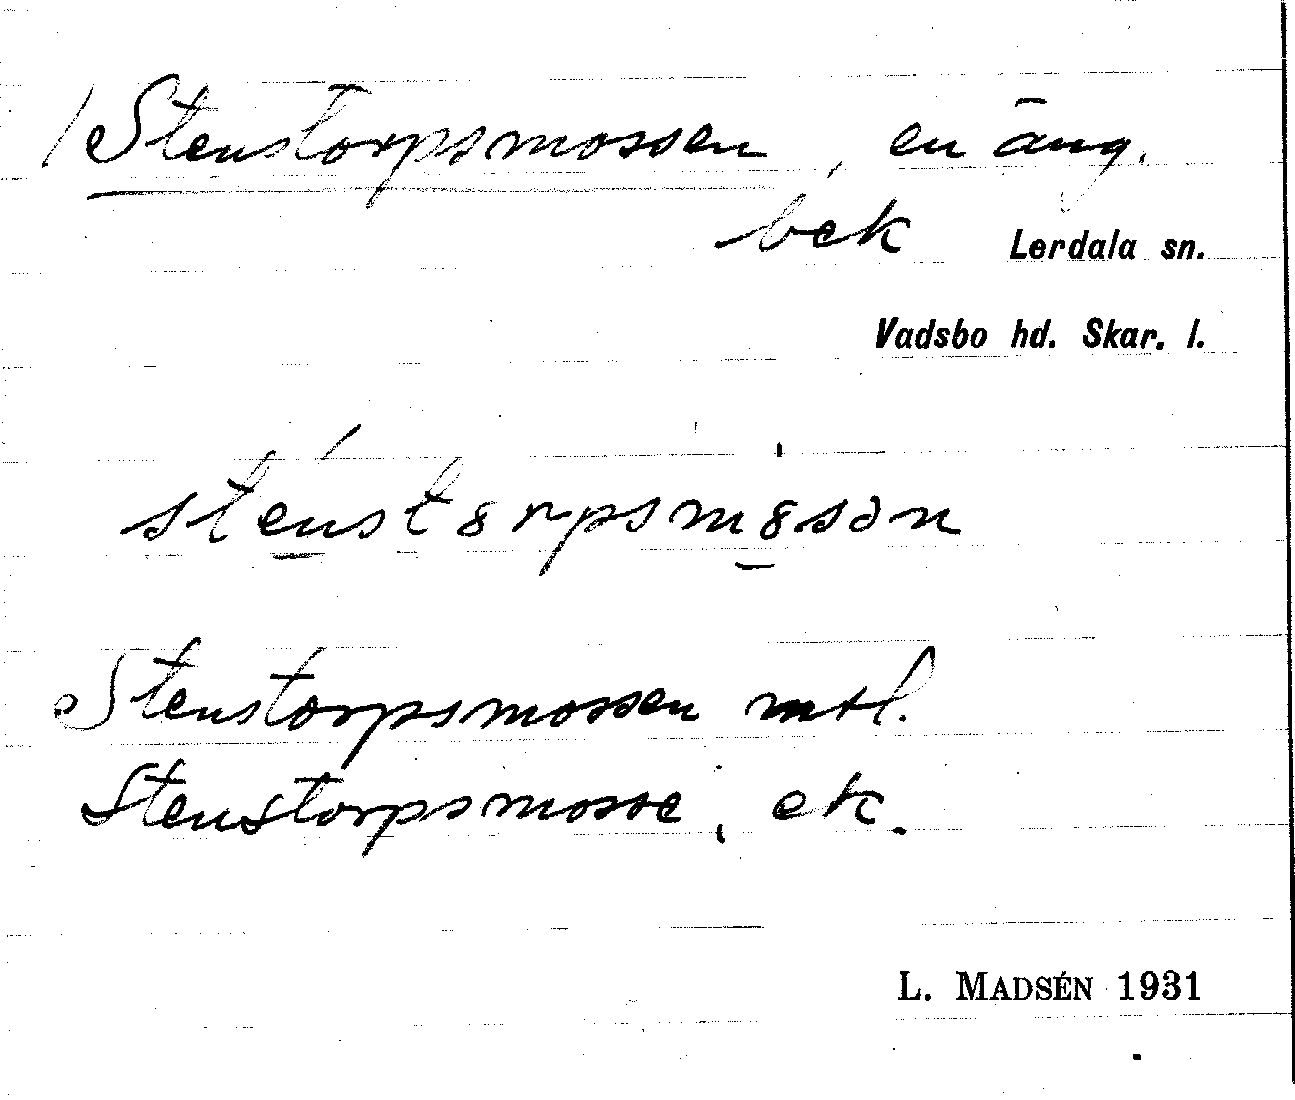 Stenstorpsmossen, en äng.
bek Lerdala sn.
Vadsbo hd. Skar. l.
sténstȣrpsmȣsən
Stenstorpsmossen mtl.
Stenstorpsmosse, ek.
L. MADSÉN 1931